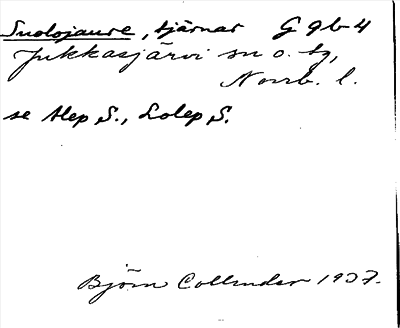 Suolojaure, tjärnar G 9b-4
Jukkasjärvi sn o. tg,
Norrb. l.
se Alep S., Lolep S.
Björn Collinder 1937.